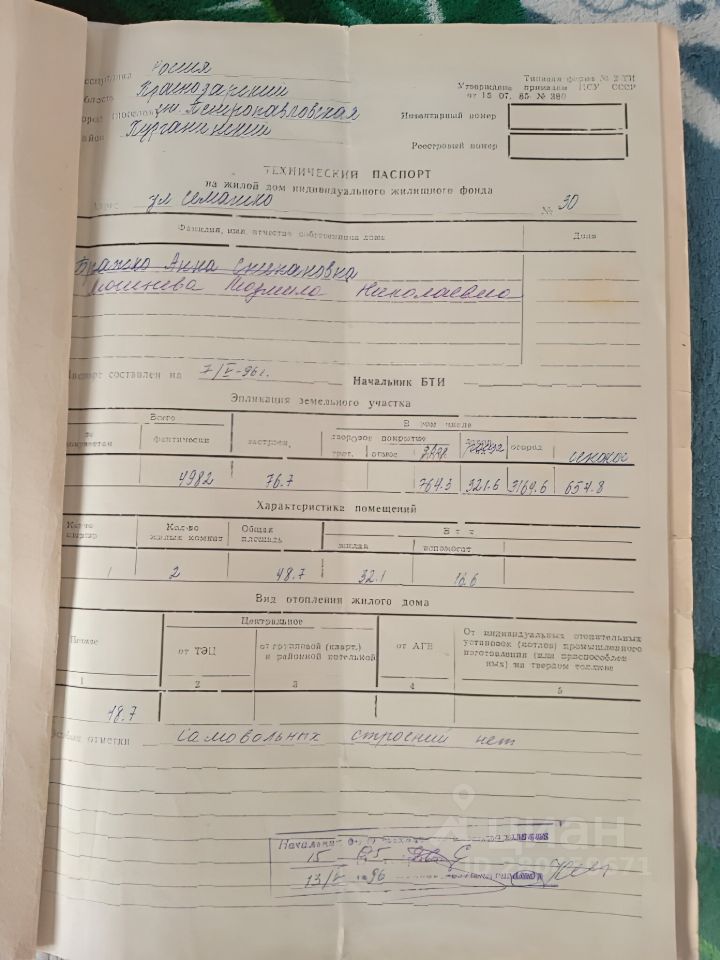 Россия
Республика
Типовая форма № 2-ТИ
область Краснодарский
Утверждена приказом ЦСУ СССР
от 15 07. 85 № 380
город (поселок) ст. Петропавловская
Инвентарный номер
район Курганинский
Реестровый номер
ТЕХНИЧЕСКИЙ ПАСПОРТ
на жилой дом индивидуального жилищного фонда
ул Семашко № 30
Фамилия, имя, отчество собственника дома Доля
Анна Степановна
Людмила Николаевна
Паспорт составлен на 7/V-96г. Начальник БТИ
Эпликация земельного участка
Всего В том числе
по документам фактически застроен. твердое покрытие огород сенокос
4982 76.7 764.3 321.6 3164.6 654.8
Характеристика помещений
Кол-во квартир Кол-во жилых комнат Общая площадь
жилая вспомогат
1 2 48.7 32.1 16.6
Вид отопления жилого дома
Центральное
Печное от ТЭЦ от групповой (кварт.) и районной котельной от АГВ От индивидуальных отопительных установок (котлов) промышленного изготовления (или приспособленных) на твердом топливе
1 2 3 4 5
48.7
Особые отметки Самовольных строений нет
15 05
13/V 1996
циан